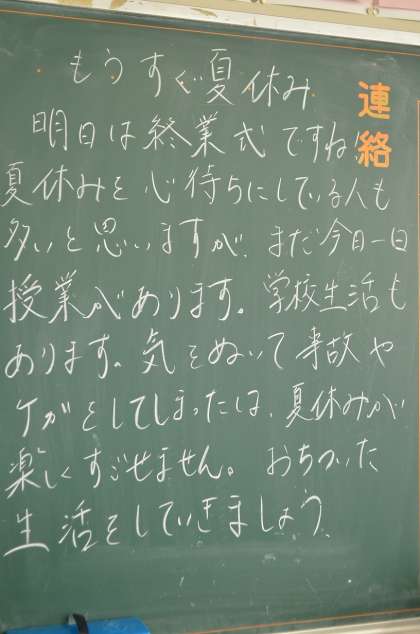 連絡
もうすぐ夏休み
明日は終業式ですね!
夏休みを心待ちにしている人も
多いと思いますが、まだ今日一日
授業があります。学校生活も
あります。気をぬいて事故や
ケガをしてしまったは、夏休みが
楽しくすごせません。おちついた
生活をしていきましょう。